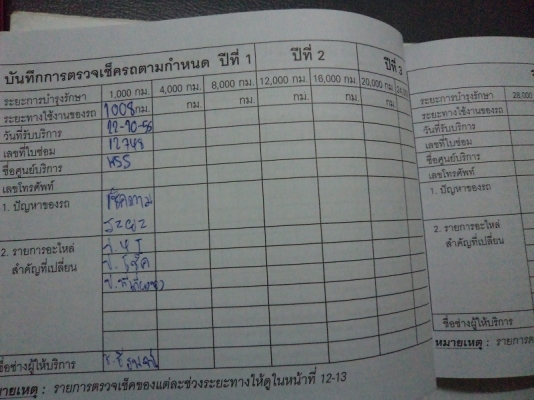 บันทึกการตรวจเช็ครถตามกำหนด ปีที่ 1 ปีที่ 2 ปีที่ 3
ระยะการบำรุงรักษา 1,000 กม. 4,000 กม. 8,000 กม. 12,000 กม. 16,000 กม. 20,000 กม.
ระยะทางใช้งานของรถ 1008 กม. กม. กม. กม. กม. กม.
วันที่รับบริการ 12-10-56
เลขที่ใบซ่อม 12748
ชื่อศูนย์บริการ
เลขโทรศัพท์
1. ปัญหาของรถ เช็คตาม
ระยะ
2. รายการอะไหล่
สำคัญที่เปลี่ยน
ชื่อช่างผู้ให้บริการ
หมายเหตุ : รายการตรวจเช็คของแต่ละช่วงระยะทางให้ดูในหน้าที่ 12-13
ระยะการบำรุงรักษา 28,000
ระยะทางใช้งานของรถ
วันที่รับบริการ
เลขที่ใบซ่อม
ชื่อศูนย์บริการ
เลขโทรศัพท์
1. ปัญหาของรถ
2. รายการอะไหล่
สำคัญที่เปลี่ยน
ชื่อช่างผู้ให้บริการ
หมายเหตุ :